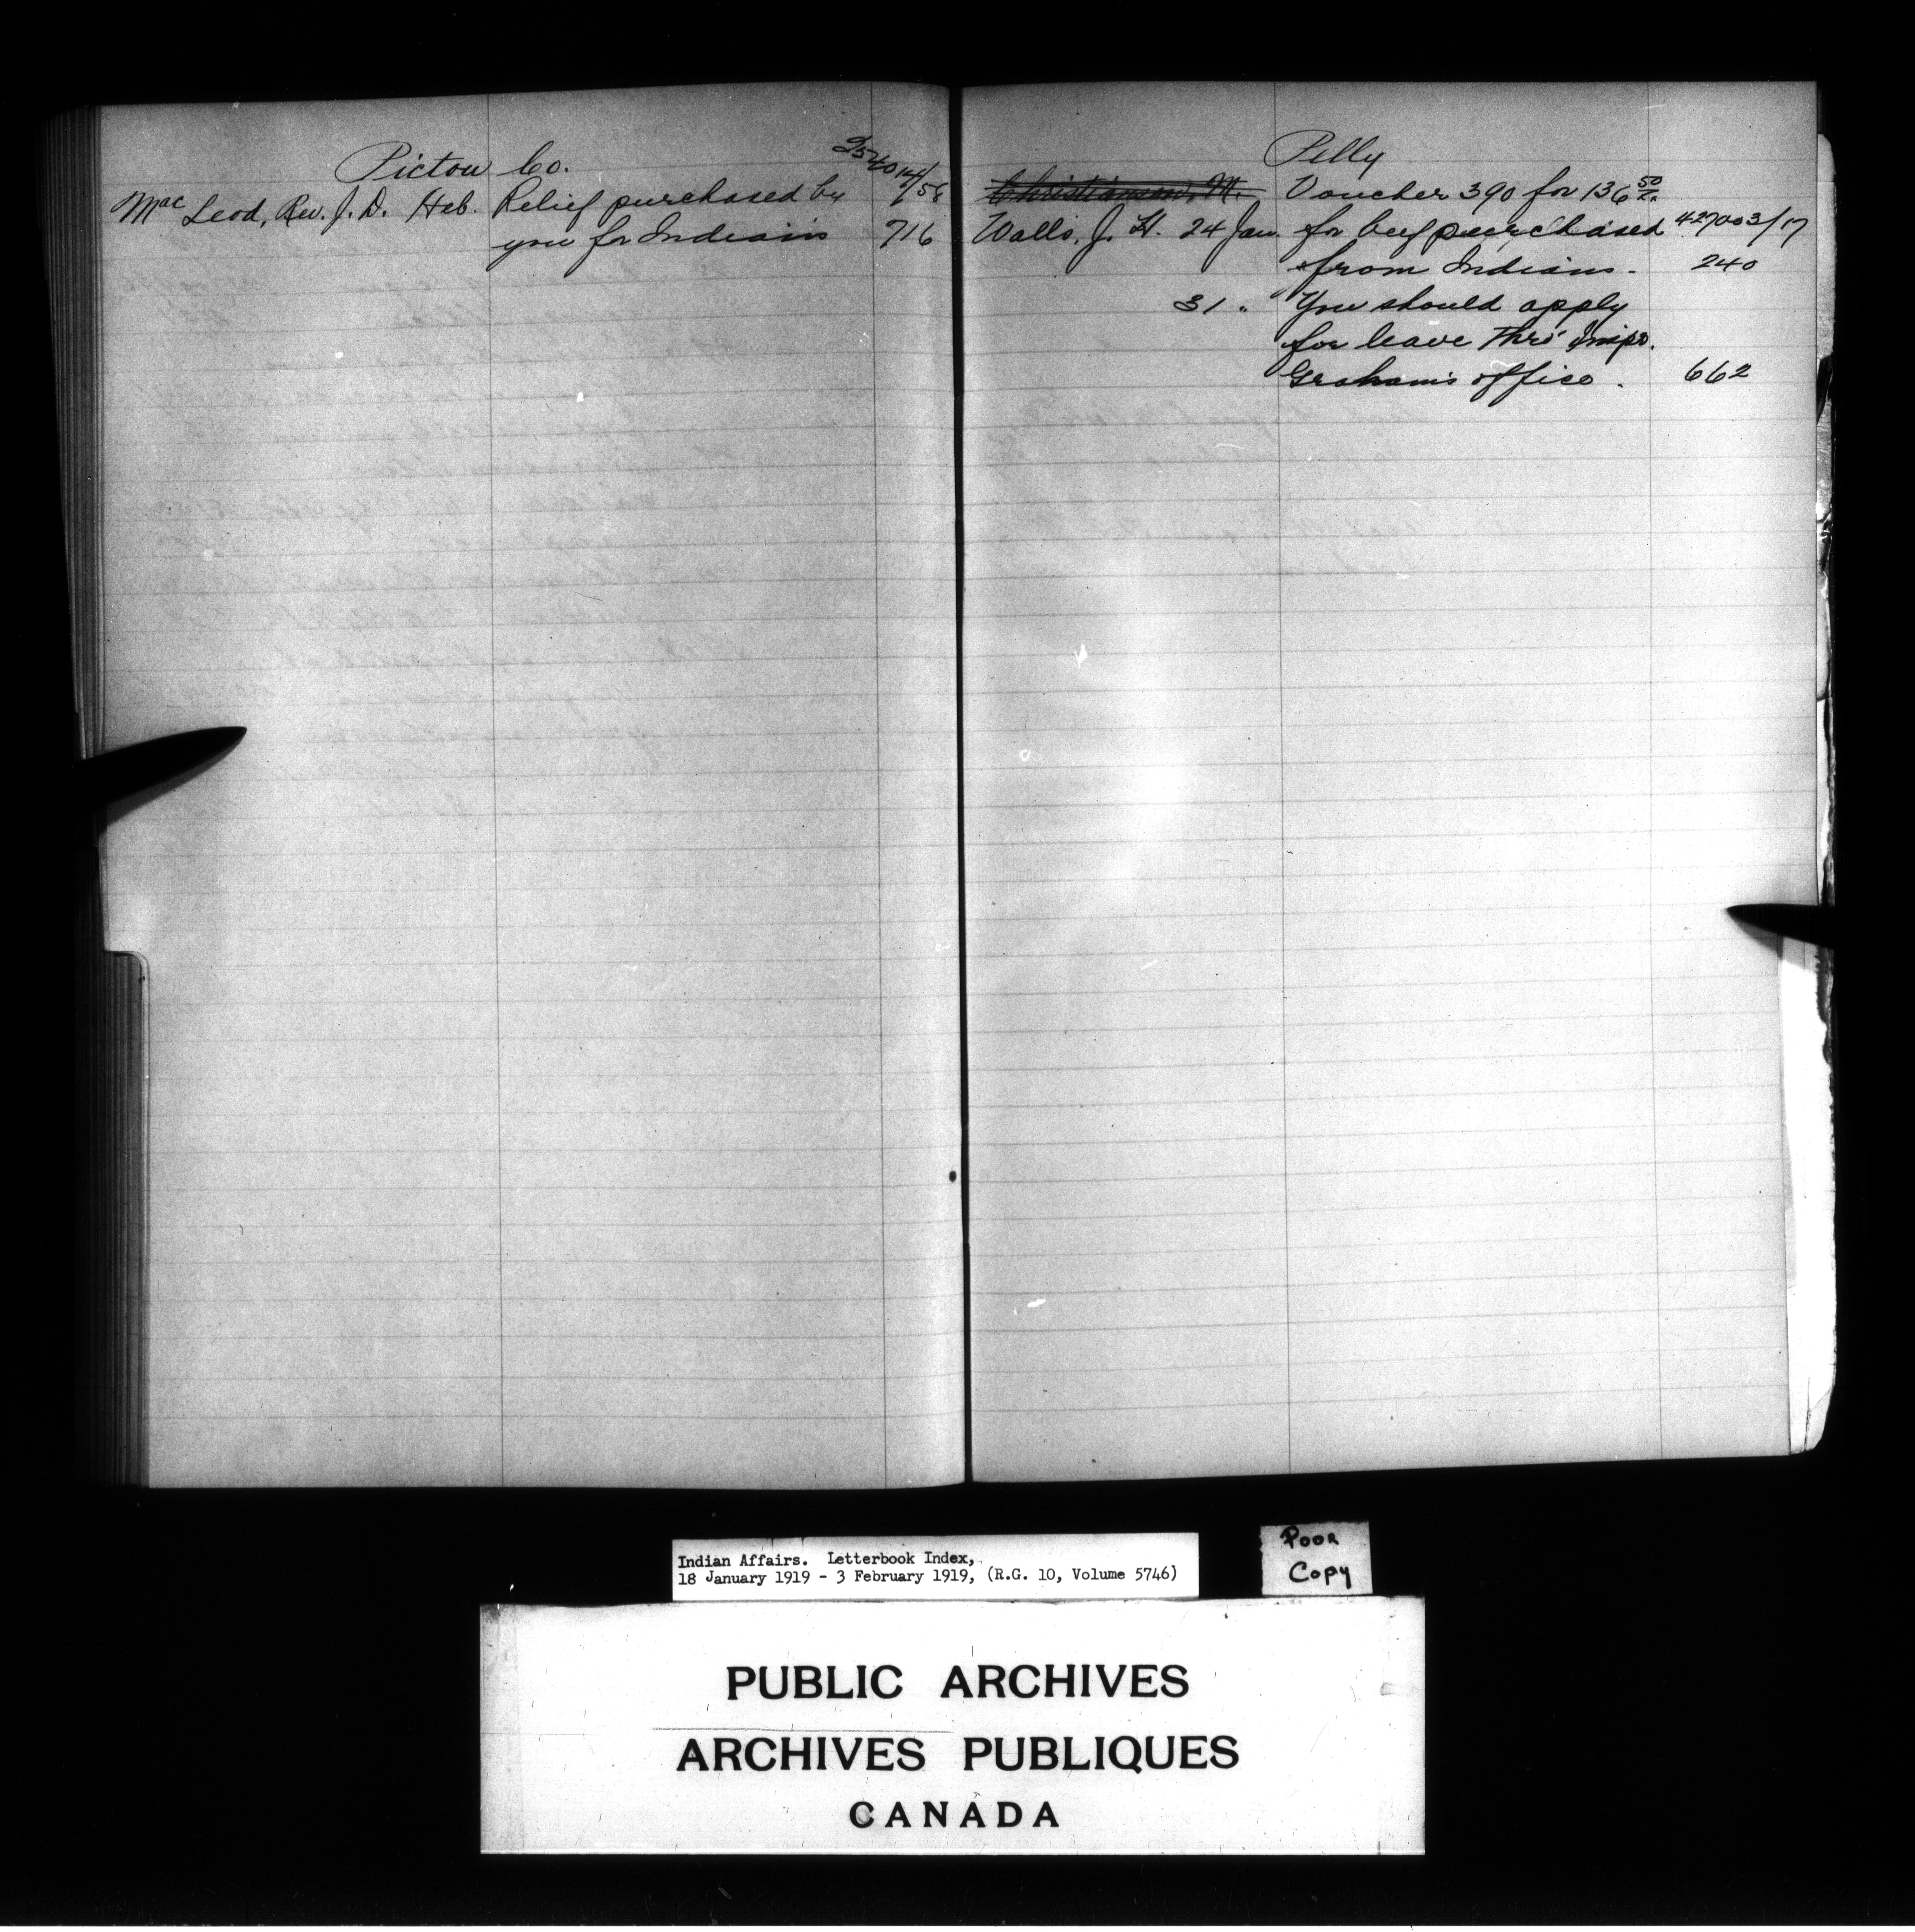 Pictou Co.
254014/58
MacLeod, Rev. J. D. Feb. Relief purchased by
you for Indians 716
Pelly
Christianson, M. Voucher 390 for 136 50
Walls, J. H. 24 Jan. for beef purchased 427003/17
from Indians. 240
31 " You should apply
for leave thro' Insps.
Graham's office. 662
Indian Affairs. Letterbook Index,
18 January 1919 - 3 February 1919, (R.G. 10, Volume 5746)
Poor
Copy
PUBLIC ARCHIVES
ARCHIVES PUBLIQUES
CANADA